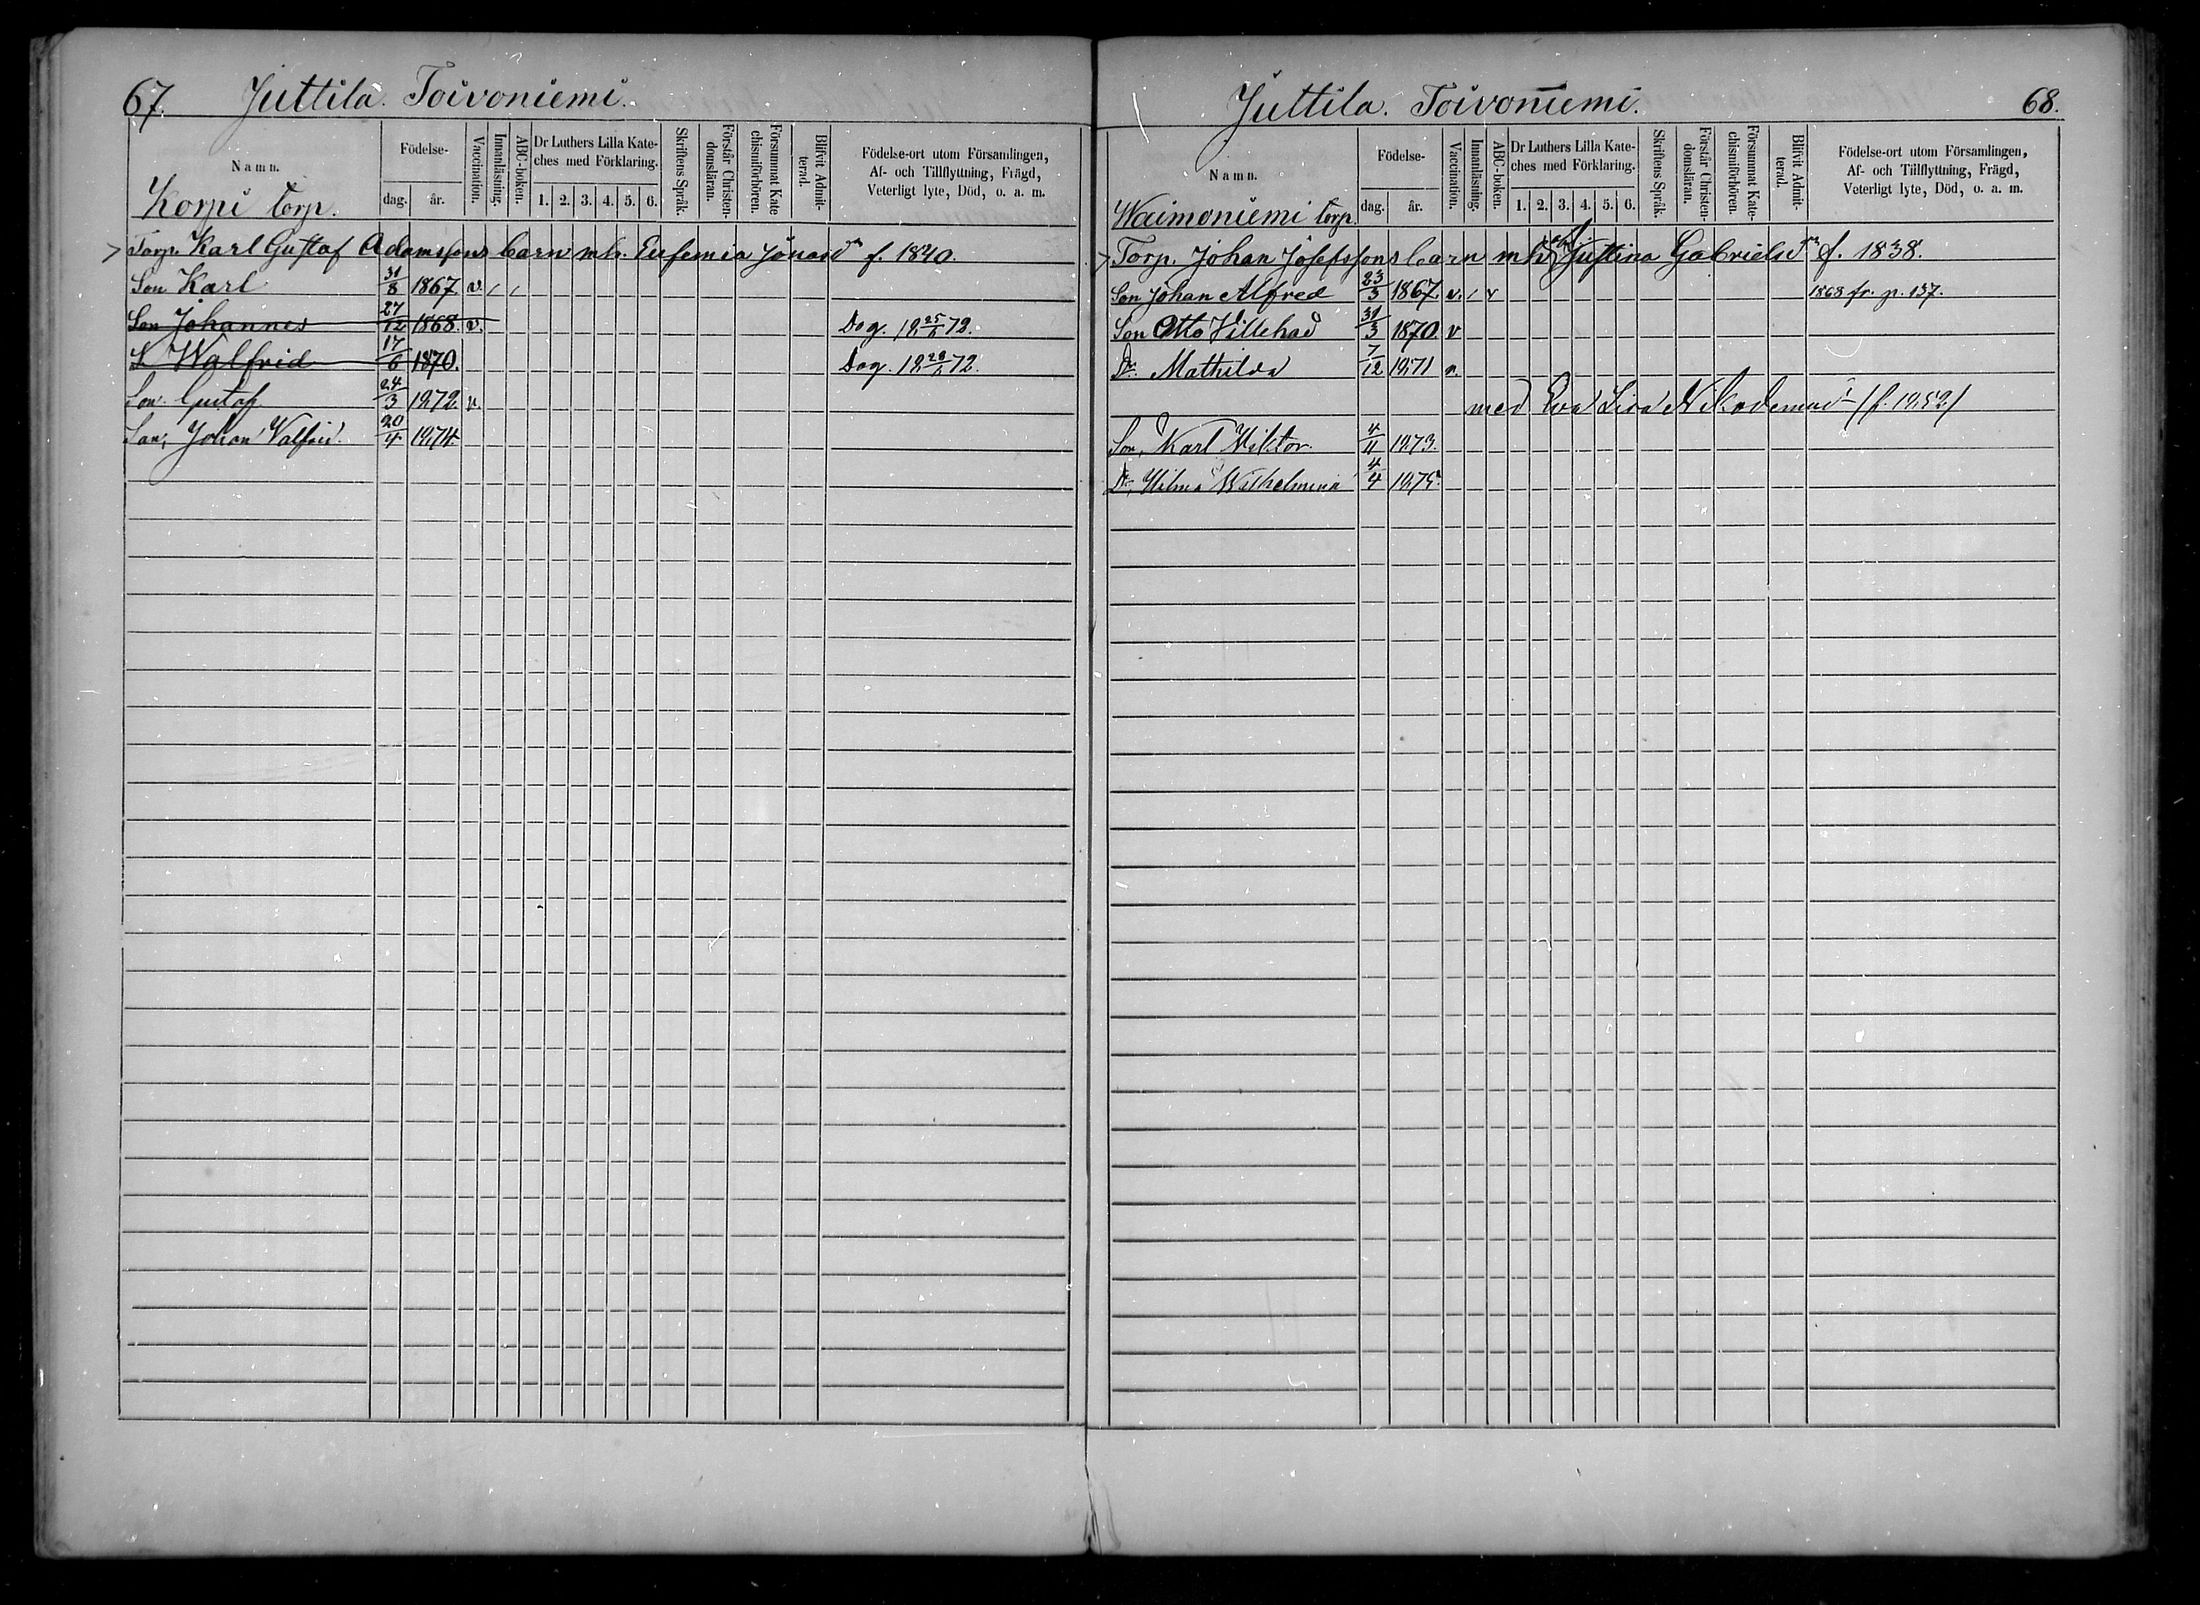 67. Juttila. Toivoniemi.
Namn.
Födelse-
dag.
år.
Vaccination.
Innanläsning.
ABC-boken.
Dr Luthers Lilla Kate-
ches med Förklaring.
1. 2. 3. 4. 5. 6.
Skriftens Språk.
Förstår Christen-
domsläran.
Försummat Kate
chismiförhören.
Blifvit Admit-
terad.
Födelse-ort utom Församlingen,
Af- och Tillflyttning, Frägd,
Veterligt lyte, Död, o. a. m.
Korpi torp.
Torp. Karl Gustaf Adamssons barn mh. Eufemia Jonasdr f. 1840.
Son Karl 31/8 1867. v. / /
Son Johannes 27/12 1868. v. Dog. 18 25/6 72.
S. Walfrid 17/6 1870. Dog. 18 72.
Son. Gustaf 24/3 1872. v.
Son, Johan Valfrid. 20/4 1874.
Juttila. Toivoniemi. 68.
Namn.
Födelse-
dag.
år.
Vaccination.
Innanläsning.
ABC-boken.
Dr Luthers Lilla Kate-
ches med Förklaring.
1. 2. 3. 4. 5. 6.
Skriftens Språk.
Förstår Christen-
domsläran.
Försummat Kate-
chismiförhören.
Blifvit Admit-
terad.
Födelse-ort utom Församlingen,
Af- och Tillflyttning, Frägd,
Veterligt lyte, Död, o. a. m.
Waimoniemi torp.
Torp. Johan Josefssons barn mh. Justina Gabrielsdr f. 1838.
Son Johan Alfred 23/3 1867. v. / v 1868 fr. p. 137.
Son Otto Villehad 31/3 1870. v
Dr. Mathilda 7/12 1871 v.
med Eva Lisa Nikodemusdr (f. 1852)
Son, Karl Viktor 4/11 1873.
Dr, Hilma Wilhelmina 4/4 1875.